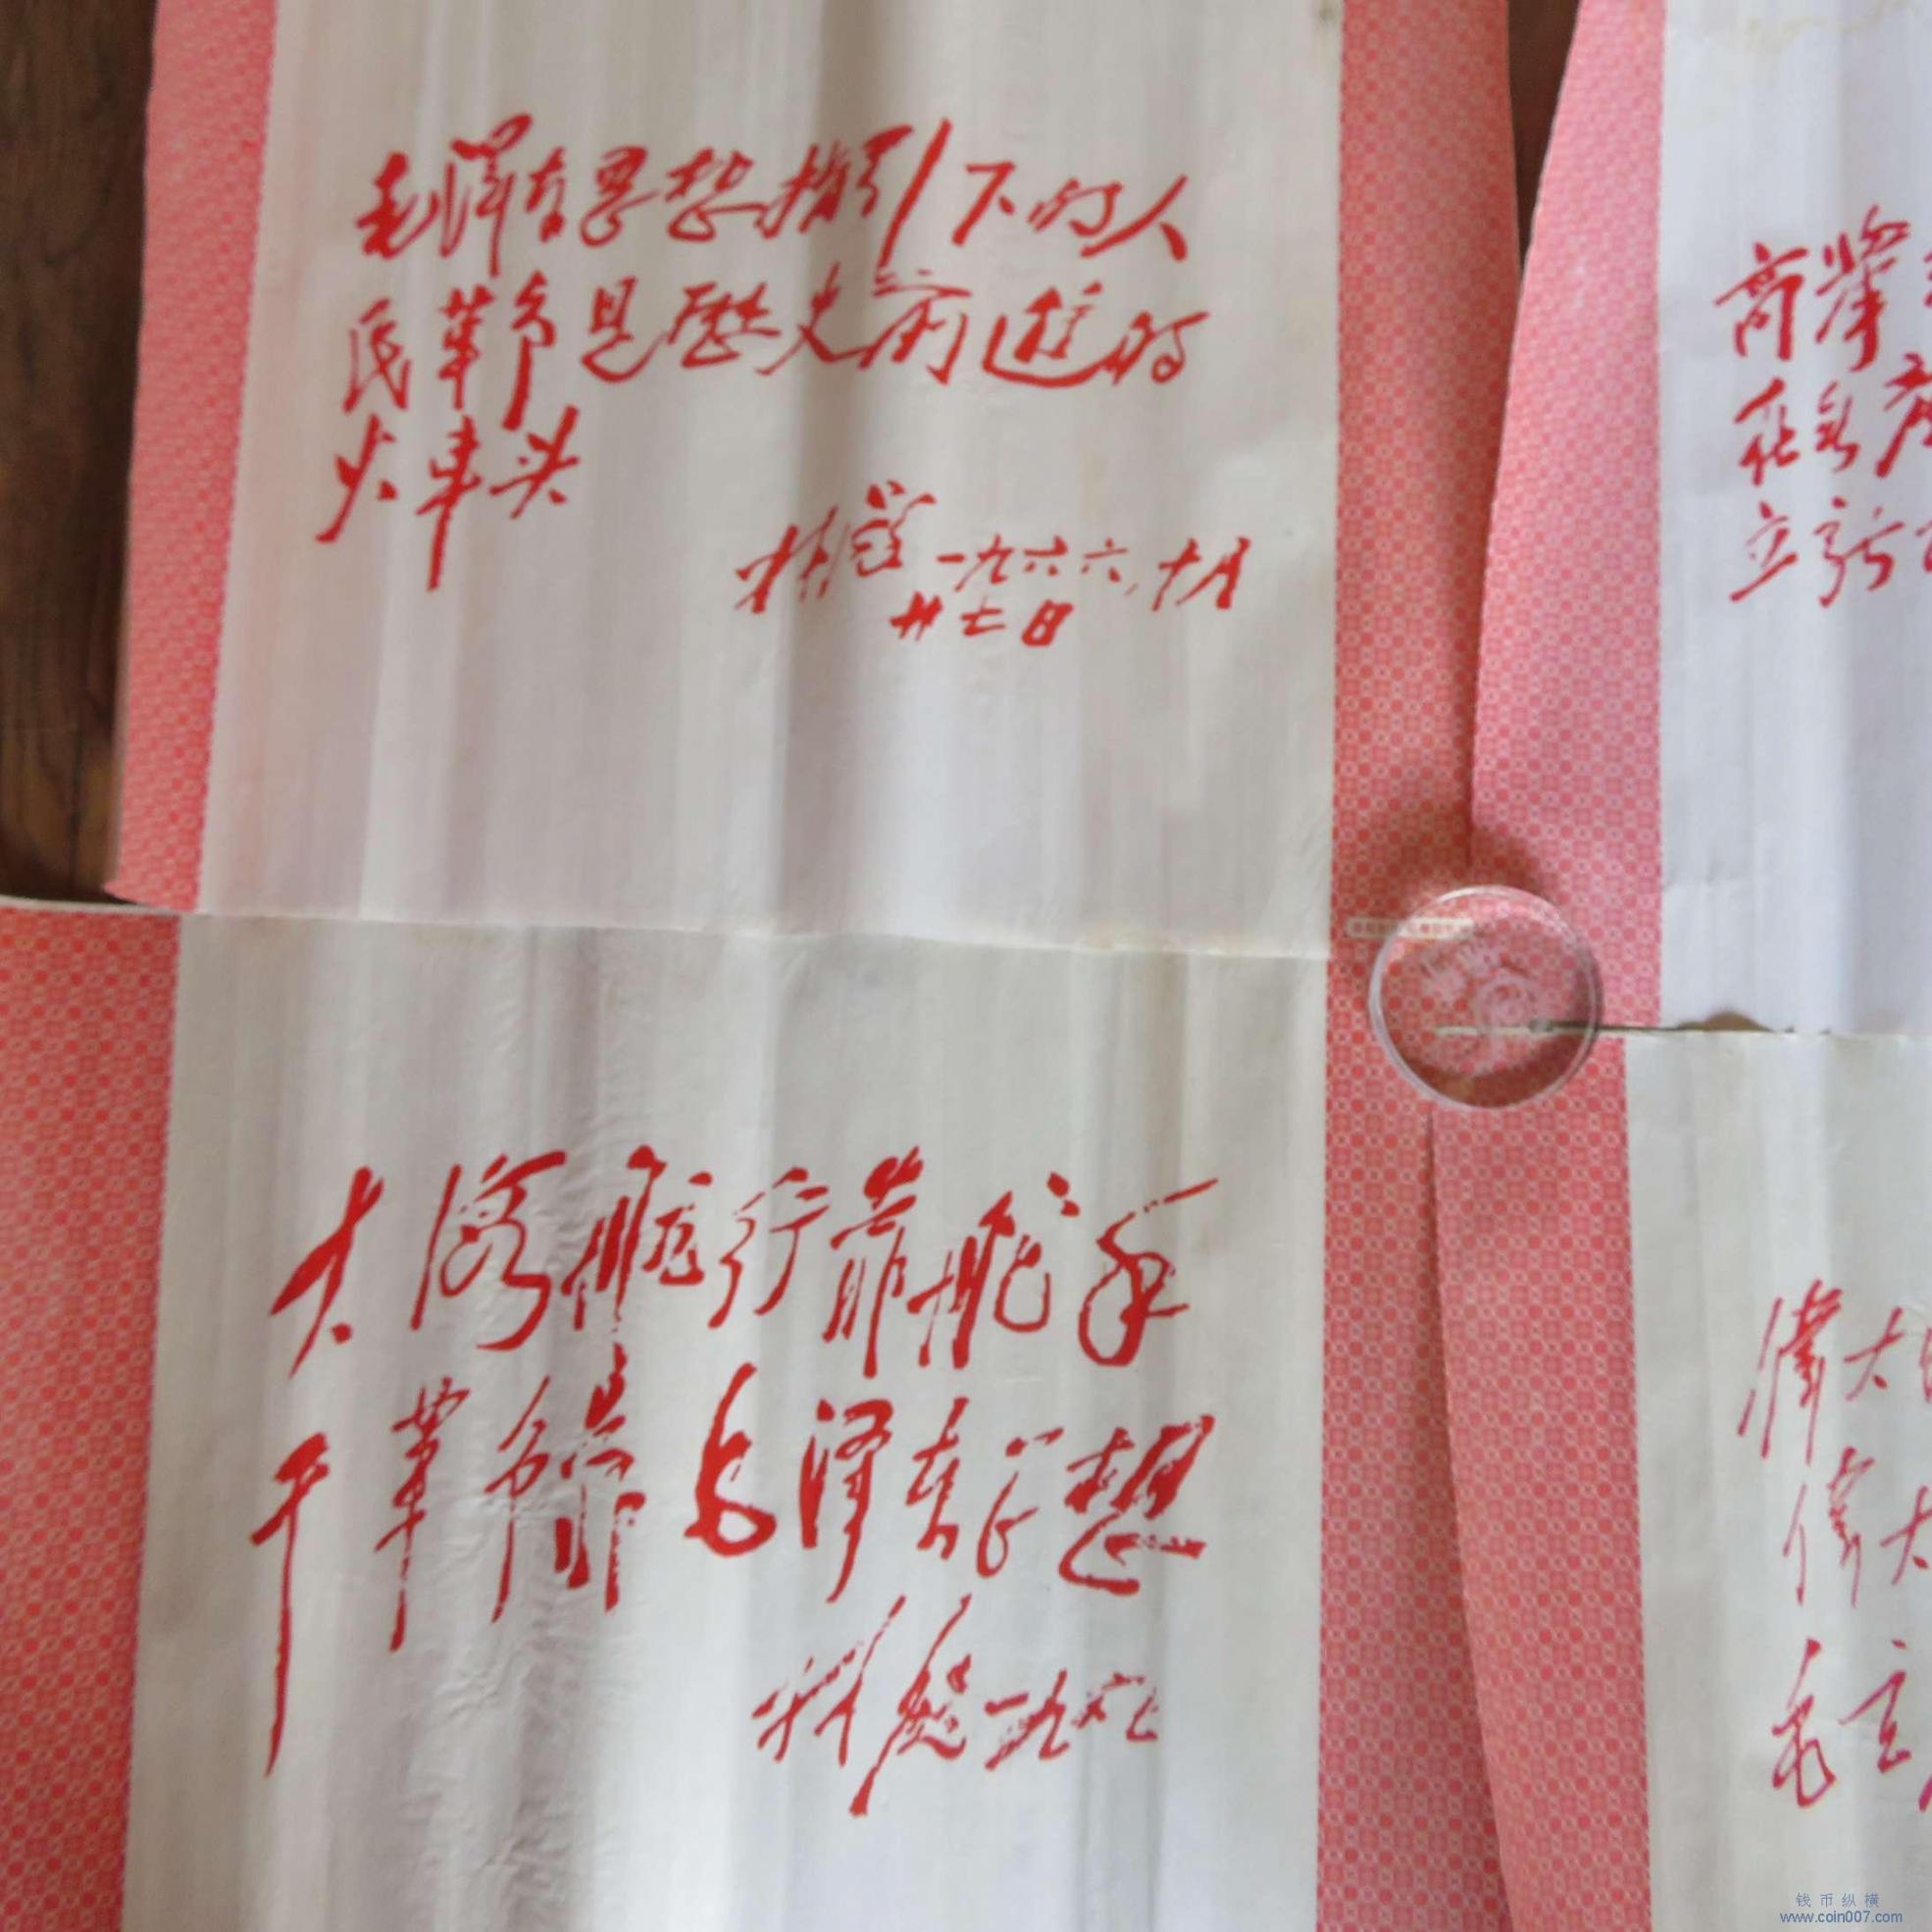 毛泽东思想指引下的人
民革命是歷史前进的
火車头
林彪 一九六六，十月
廿七日
大海航行靠舵手
干革命靠毛泽东思想
林彪 一九六七
高举
在
立新
偉大
偉大
毛主
钱币纵横
www.coin007.com